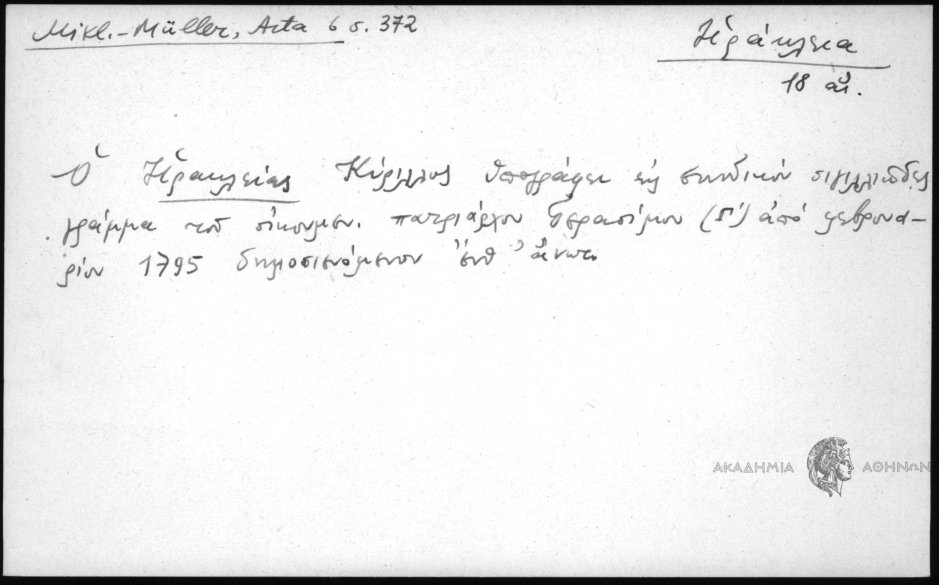 Mikl.-Müller, Acta 6 σ. 372
Ἡράκλεια
18 αἰ.
Ὁ Ἡρακλείας Κύριλλος ὑπογράφει εἰς συνοδικὸν σιγιλλιῶδες
γράμμα τοῦ οἰκουμεν. πατριάρχου Γερασίμου (Γ΄) ἀπὸ φεβρουα-
ρίου 1795 δημοσιευόμενον ἔνθ' ἄνωτ.
ΑΚΑΔΗΜΙΑ ΑΘΗΝΩΝ